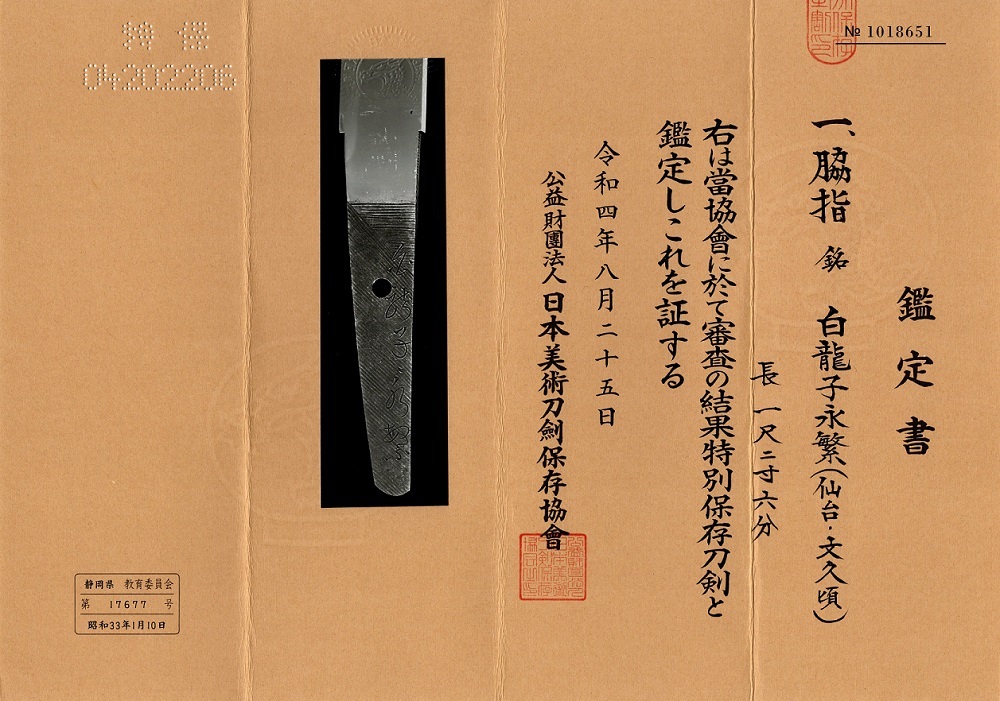 № 1018651
鑑定書
一、脇指 銘 白龍子永繁(仙台・文久頃)
長 一尺二寸六分
右は當協會に於て審査の結果特別保存刀剣と
鑑定しこれを証する
令和四年八月二十五日
公益財團法人 日本美術刀劍保存協會
特保
04202206
静岡県 教育委員会
第 17677 号
昭和33年1月10日